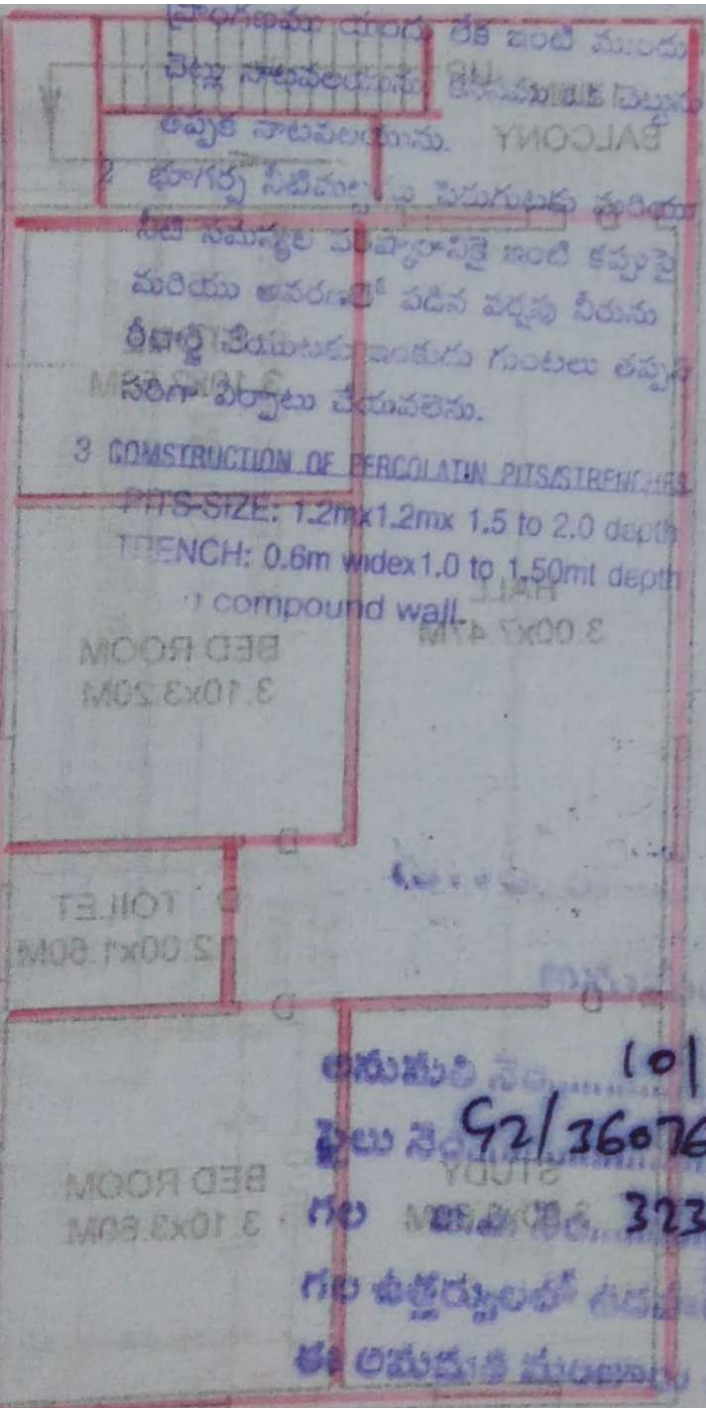 ప్రాంగణము యందు లేక ఇంటి ముందు
చెట్లు నాటవలయును. చెట్టును
తప్పక నాటవలయును.
BALCONY
2 భూగర్భ నీటిమట్టము పెరుగుటకు మరియు
నీటి సమస్యల పరిష్కారానికై ఇంటి కప్పుపై
మరియు ఆవరణలో పడిన వర్షపు నీరును
రీచార్జి చేయుటకు ఇంకుడు గుంటలు తప్పని
సరిగా ఏర్పాటు చేయవలెను.
3 COMSTRUCTION OF PERCOLATIN PITS/STRENCHES
PITS-SIZE: 1.2mx1.2mx 1.5 to 2.0 depth
TRENCH: 0.6m widex1.0 to 1.50mt depth
compound wall.
HALL
3.00x7.47M
BED ROOM
3.10x3.20M
TOILET
2.00x1.60M
అనుమతి నెం. 101
ఫైలు నెం. G2/36076
STUDY
BED ROOM
3.10x3.60M
గల 323
గల ఉత్తర్వులలో
ఈ అనుమతి మంజూరు